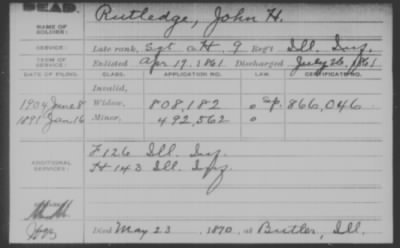 DEAD.
NAME OF SOLDIER: Rutledge, John H.
SERVICE: Late rank, Sgt Co. H, 9 Reg't Ill. Inf.
TERM OF SERVICE: Enlisted Apr 19, 1861 Discharged July 26, 1861
DATE OF FILING. CLASS. APPLICATION NO. LAW. CERTIFICATE NO.
Invalid,
1904 June 8 Widow, 808,182 866,046
1891 Jan 16 Minor, 492,562
ADDITIONAL SERVICES: F 126 Ill. Inf.
H 143 Ill. Inf.
Died May 23, 1870, at Butler, Ill.